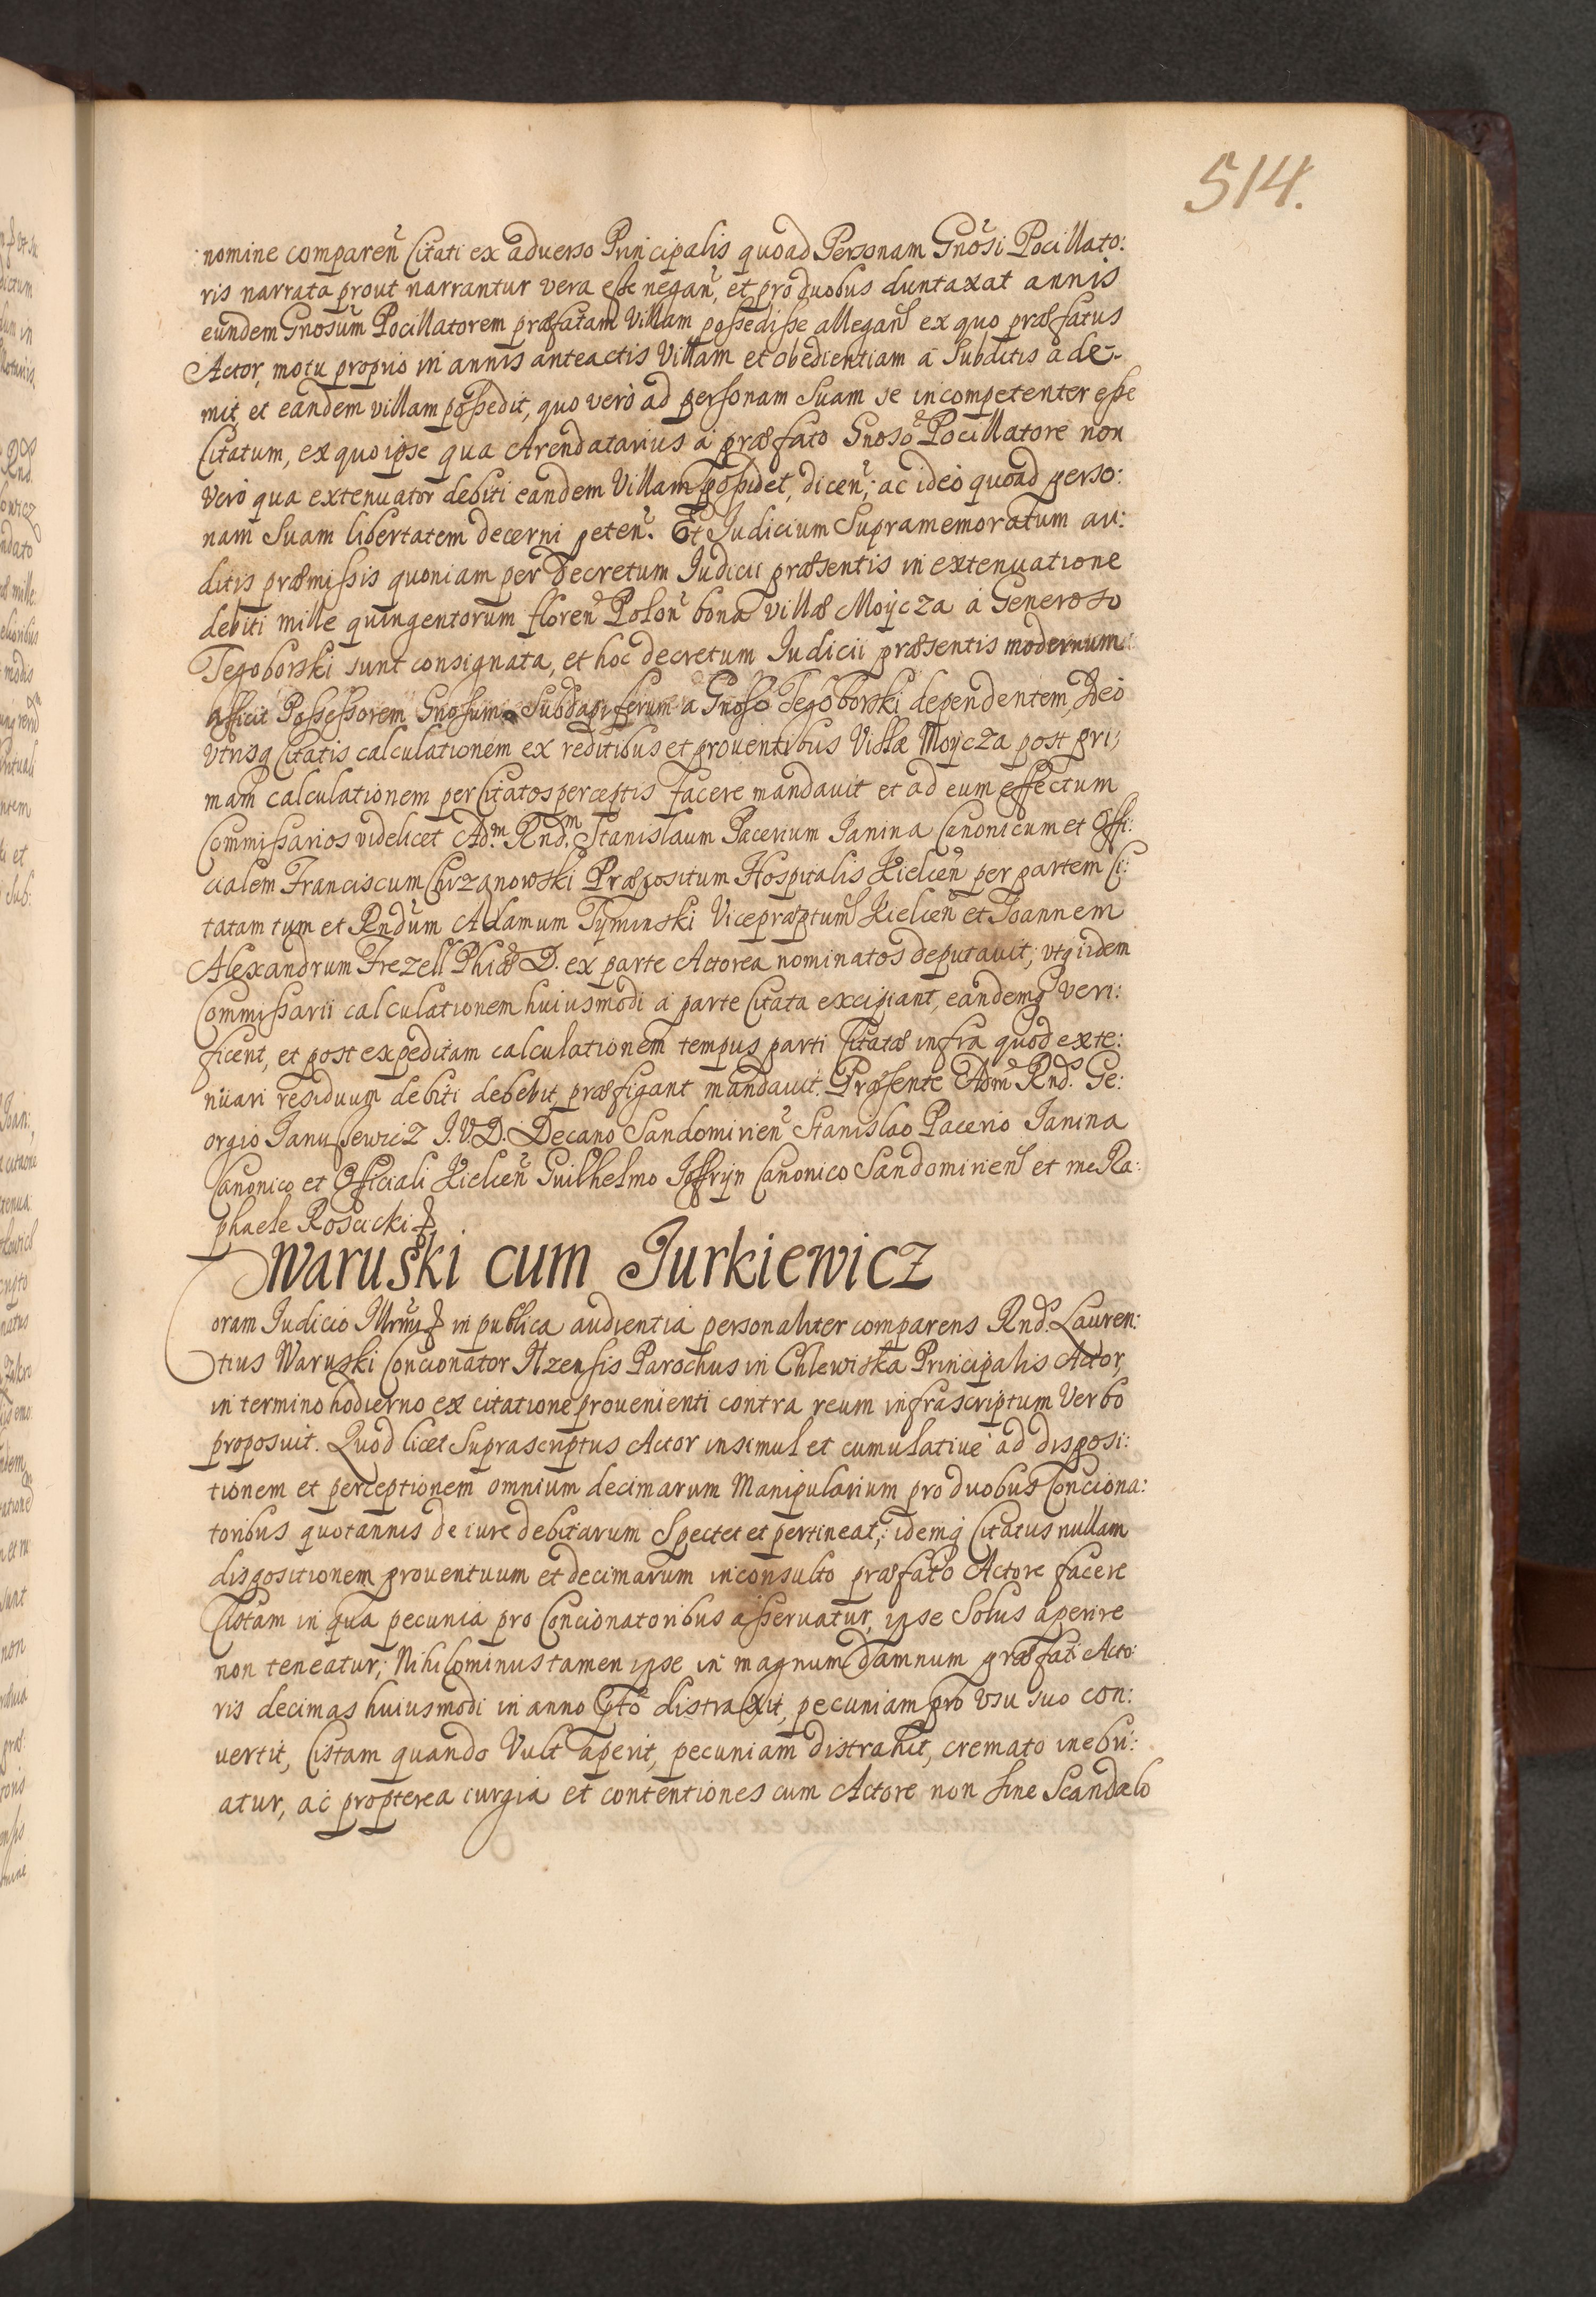 514.
nomine comparen̄ Citati ex aduerso Principalis quoad Personam Gnōsi Pocillato:
ris narrata prout narrantur vera eſse negan̄, et pro duobus duntaxat annis
eundem Gnosum̄ Pocillatorem præfatam Villam poſsediſse allegan̄ ex quo præfatus
Actor, motu proprio in annis anteactis Villam et obedientiam à Subditis ade-
mit, et eandem villam poſsedit, quo verò ad personam Suam se incompetenter eſse
Citatum, ex quo ipse qua Arendatarius à præfato Gnosō Pocillatore non
verò qua extenuator debiti eandem Villam poſsidet, dicen̄; ac ideò quoad perso:
nam Suam libertatem decerni peten̄. Et Judicium Supramemoratum au:
ditis præmiſsis quoniam per Decretum Judicii præsentis in extenuatione
debiti mille quingentorum floren̄ Polon̄ bona villæ Moÿcza à Generoso
Tegoborski sunt consignata, et hoc decretum Iudicii præsentis modernum
afficit Poſseſsorem Gnosum Subdapiferum a Gnoso Tegoborski dependentem, Ideò
vtrisq Citatis calculationem ex reditibus et prouentibus Villæ Moÿcza post pri;
mam calculationem per Citatos perceptis facere mandauit et ad eum effectum
Commiſsarios videlicet Ad.m Rnd.m Stanislaum Pacerium Ianina Canonicum et Offi:
cialem Franciscum Chrzanowski Præpositum Hospitalis Kielcen̄ per partem Ci:
tatam tum et Rndūm Adamum Tÿminski Vicepræptum̄ Kielcen̄ et Joannem
Alexandrum Frezell Phiæ D. ex parte Actorea nominatos deputauit; vtq iidem
Commiſsarii calculationem huiusmodi à parte Citata excipiant, eandemq veri:
ficent, et post expeditam calculationem tempus parti Citatæ infra quod exte:
nuari residuum debiti debebit, præfigant mandauit. Præsente Adm̄ Rnd. Ge:
orgio Janusewicz J.V.D. Decano Sandomirien̄ Stanislao Pacerio Ianina
Canonico et Officiali Kielcen̄ Guilhelmo Joffrÿn Canonico Sandomirien̄ et me Ra:
phaele Roscicki
Waruski cum Jurkiewicz
Coram Judicio Illrmi in publica audientia personaliter comparens Rnd. Lauren:
tius Waruski Concionator Ilzensis Parochus in Chlewiska Principalis Actor,
in termino hodierno ex citatione prouenienti contra reum infrascriptum Verbo
proposuit. Quod licet Suprascriptus Actor insimul et cumulatiue ad disposi:
tionem et perceptionem omnium decimarum Manipularium pro duobus Conciona:
toribus quotannis de iure debitarum Spectet et pertineat; idemq Citatus nullam
dispositionem prouentuum et decimarum inconsulto præfato Actore facere
Cistam in qua pecunia pro Concionatoribus aſseruatur, ipse Solus aperire
non teneatur; Nihilominus tamen ipse in magnum damnum præfati Acto:
ris decimas huiusmodi in anno pto distraxit, pecuniam pro vsu suo con:
uertit, Cistam quando Vult aperit, pecuniam distrahit, cremato inebri:
atur, ac propterea iurgia et contentiones cum Actore non sine Scandalo